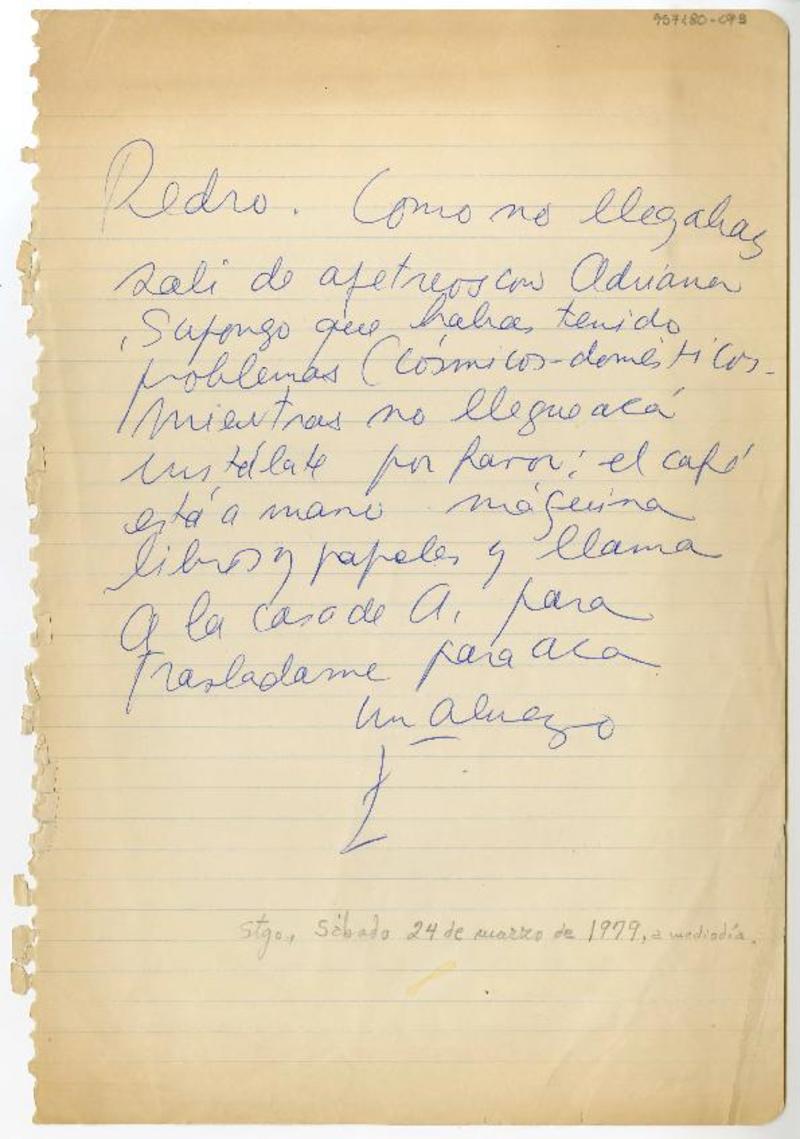 957180-093
Pedro. Como no llegabas
sali de apetreos con Adriana
, Supongo que habras tenido
problemas (cósmicos-domésticos-
Mientras no llegue acá
instálate por favor; el café
está a mano máquina
libros y papeles y llama
a la casa de A. para
trasladarme para aca
un abrazo
Stgo, Sábado 24 de marzo de 1979, a mediodía.